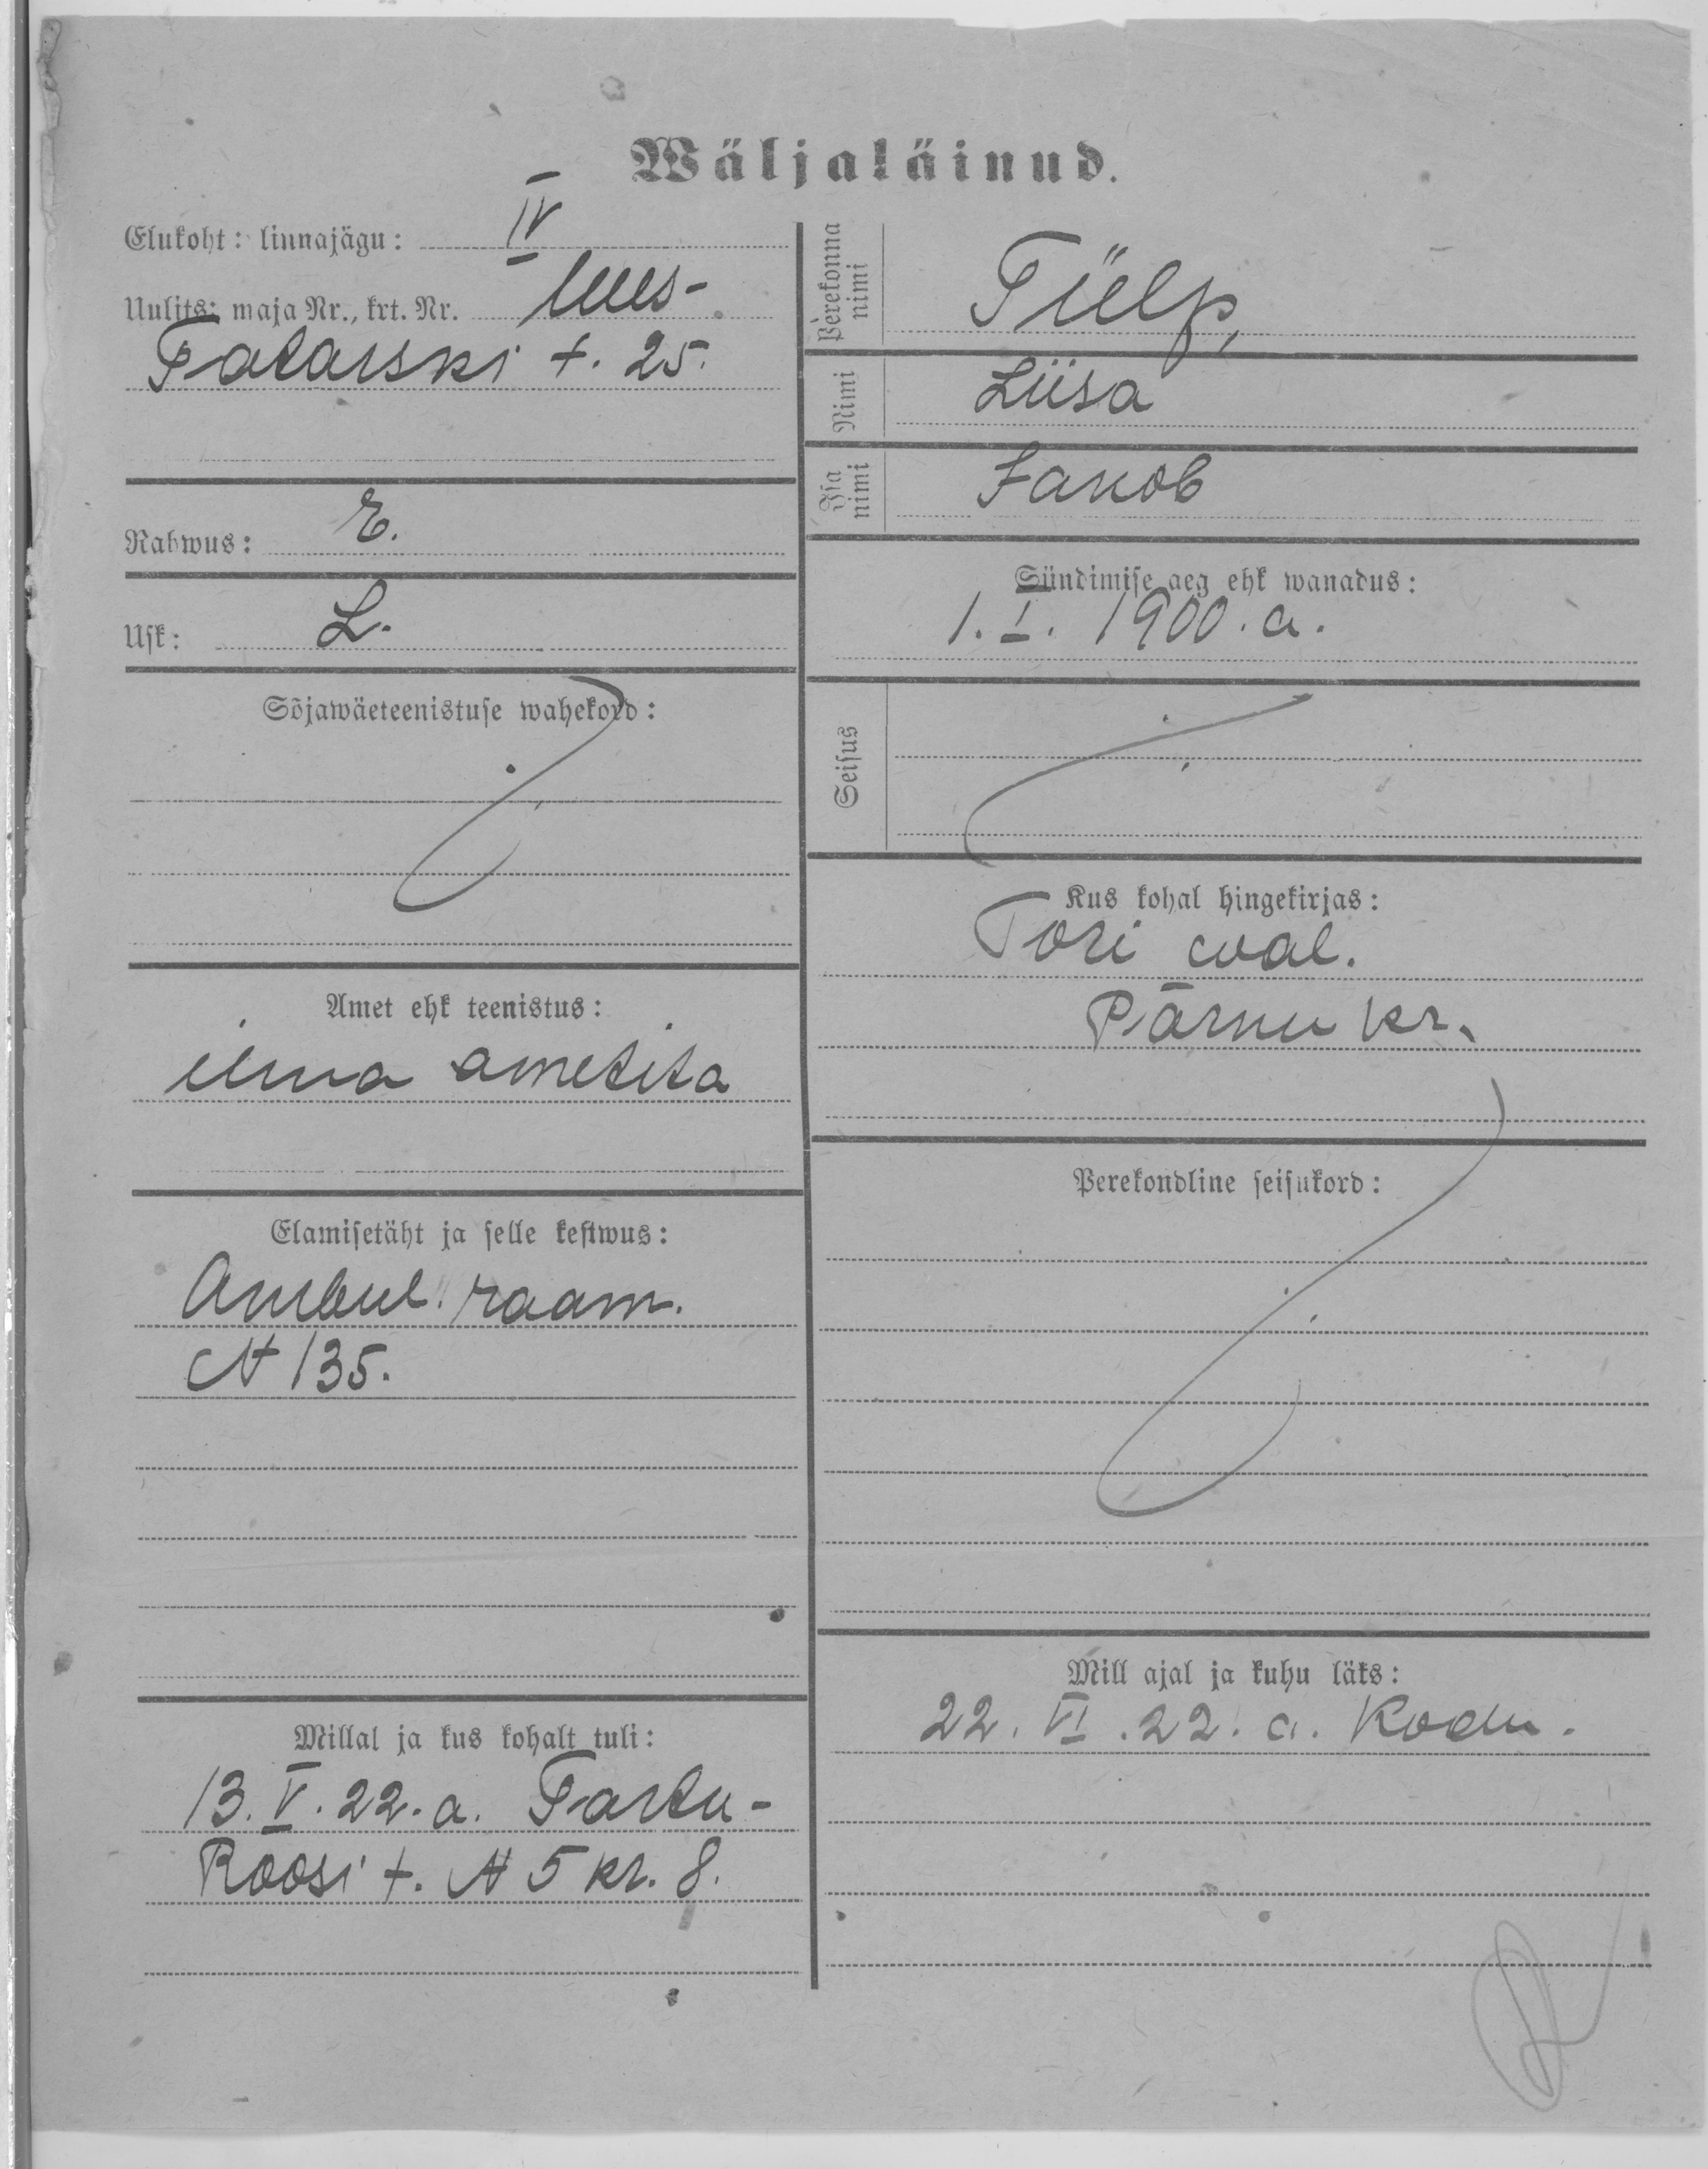 Wäljaläinud.
Elukoht: linnajägu: IV
Uulits: maja Nr., krt. Nr. Uus-
Tatarski t. 25.
Rahwus: E.
Usk: L.
Sõjawäeteenistuse wahekord:
Amet ehk teenistus:
ilma ametita
Elamisetäht ja selle kestwus:
Ambul. raam.
N 135.
Millal ja kus kohalt tuli:
13. V. 22. a. Tartu-
Roosi t. N 5 kr. 8.
Perekonna nimi
Tülp,
Nimi
Liisa
Isa nimi
Jakob
Sündimise aeg ehk wanadus:
1. I. 1900. a.
Seisus
Kus kohal hingekirjas:
Tori wal.
Pärnu kr.
Perekondline seisukord:
Mill ajal ja kuhu läks:
22. VI. 22. a. Kodu.